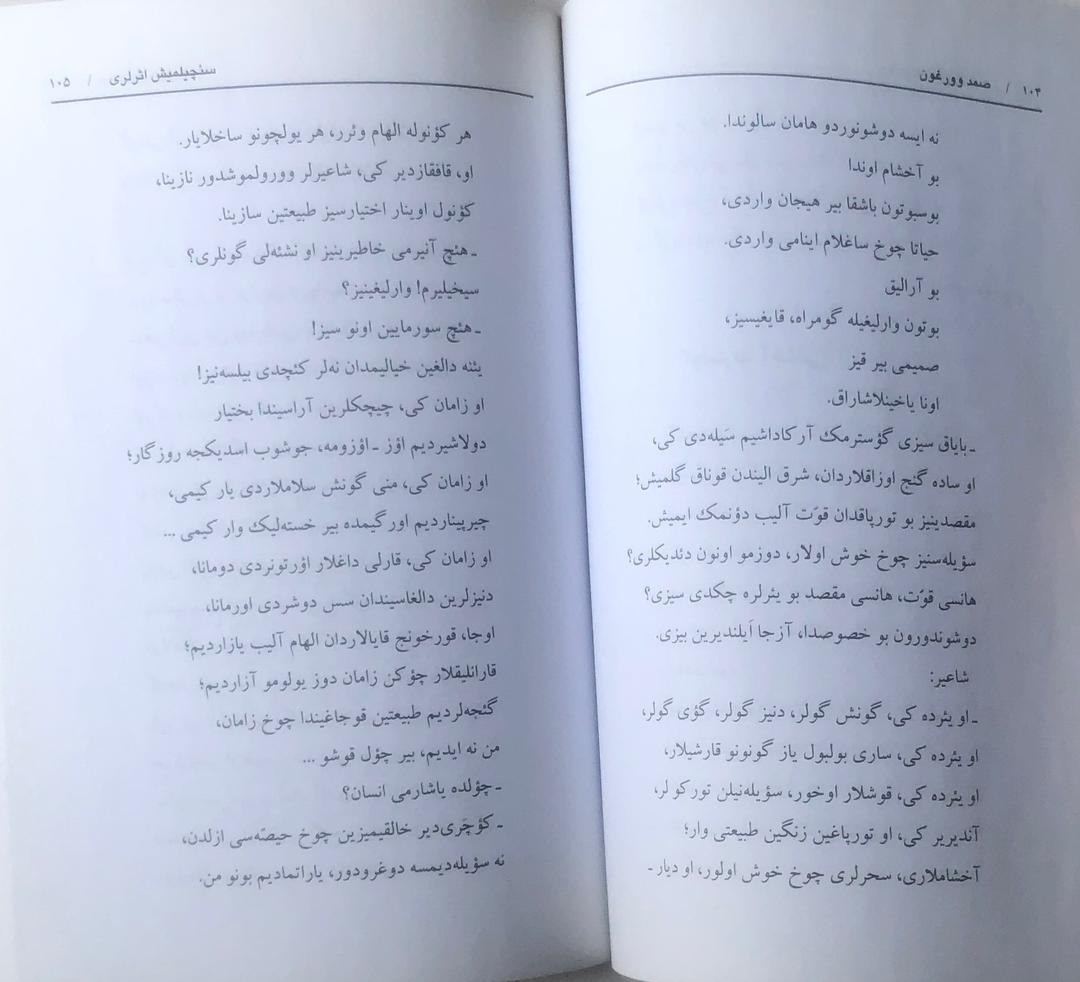 ۱۰۴ / صمد وورغون
نه ایسه دوشونوردو هامان سالوندا.
بو آخشام اوندا
بوسبوتون باشقا بیر هیجان واردی،
حیاتا چوخ ساغلام اینامی واردی.
بو آرالیق
بوتون وارلیغیله گومراه، قایغیسیز،
صمیمی بیر قیز
اونا یاخینلاشاراق.
ـ بایاق سیزی گؤسترمک آرکاداشیم سَیله‌دی کی،
او ساده گنج اوزاقلاردان، شرق الیندن قوناق گلمیش؛
مقصدینیز بو تورپاقدان قوّت آلیب دؤنمک ایمیش.
سؤیله‌سنیز چوخ خوش اولار، دوزمو اونون دئدیکلری؟
هانسی قوّت، هانسی مقصد بو یئرلره چکدی سیزی؟
دوشوندورون بو خصوصدا، آزجا اَیلندیرین بیزی.
شاعیر:
ـ او یئرده کی، گونش گولر، دنیز گولر، گؤی گولر،
او یئرده کی، ساری بولبول یاز گونونو قارشیلار،
او یئرده کی، قوشلار اوخور، سؤیله‌نیلن تورکو لر،
آندیریر کی، او تورپاغین زنگین طبیعتی وار؛
آخشاملاری، سحرلری چوخ خوش اولور، او دیار ـ
سئچیلمیش اثرلری / ۱۰۵
هر کؤنوله الهام وئرر، هر یولچونو ساخلایار.
او، قافقازدیر کی، شاعیرلر وورولموشدور نازینا،
کؤنول اوینار اختیارسیز طبیعتین سازینا.
ـ هئچ آنیرمی خاطیرینیز او نشئه‌لی گونلری؟
سیخیلیرم! وارلیغینیز؟
ـ هئچ سورمایین اونو سیز!
یئنه دالغین خیالیمدان نه‌لر کئچدی بیلسه‌نیز!
او زامان کی، چیچکلرین آراسیندا بختیار
دولاشیردیم اؤز ـ اؤزومه، جوشوب اسدیکجه روزگار؛
او زامان کی، منی گونش سلاملاردی یار کیمی،
چیرپیناردیم اورگیمده بیر خسته‌لیک وار کیمی ...
او زامان کی، قارلی داغلار اؤرتونردی دومانا،
دنیزلرین دالغاسیندان سس دوشردی اورمانا،
اوجا، قورخونج قایالاردان الهام آلیب یازاردیم؛
قارانلیقلار چؤکن زامان دوز یولومو آزاردیم؛
گئجه‌لردیم طبیعتین قوجاغیندا چوخ زامان،
من نه ایدیم، بیر چؤل قوشو ...
ـ چؤلده یاشارمی انسان؟
ـ کؤچَری‌دیر خالقیمیزین چوخ حیصّه‌سی ازلدن،
نه سؤیله‌دیمسه دوغرودور، یاراتمادیم بونو من.